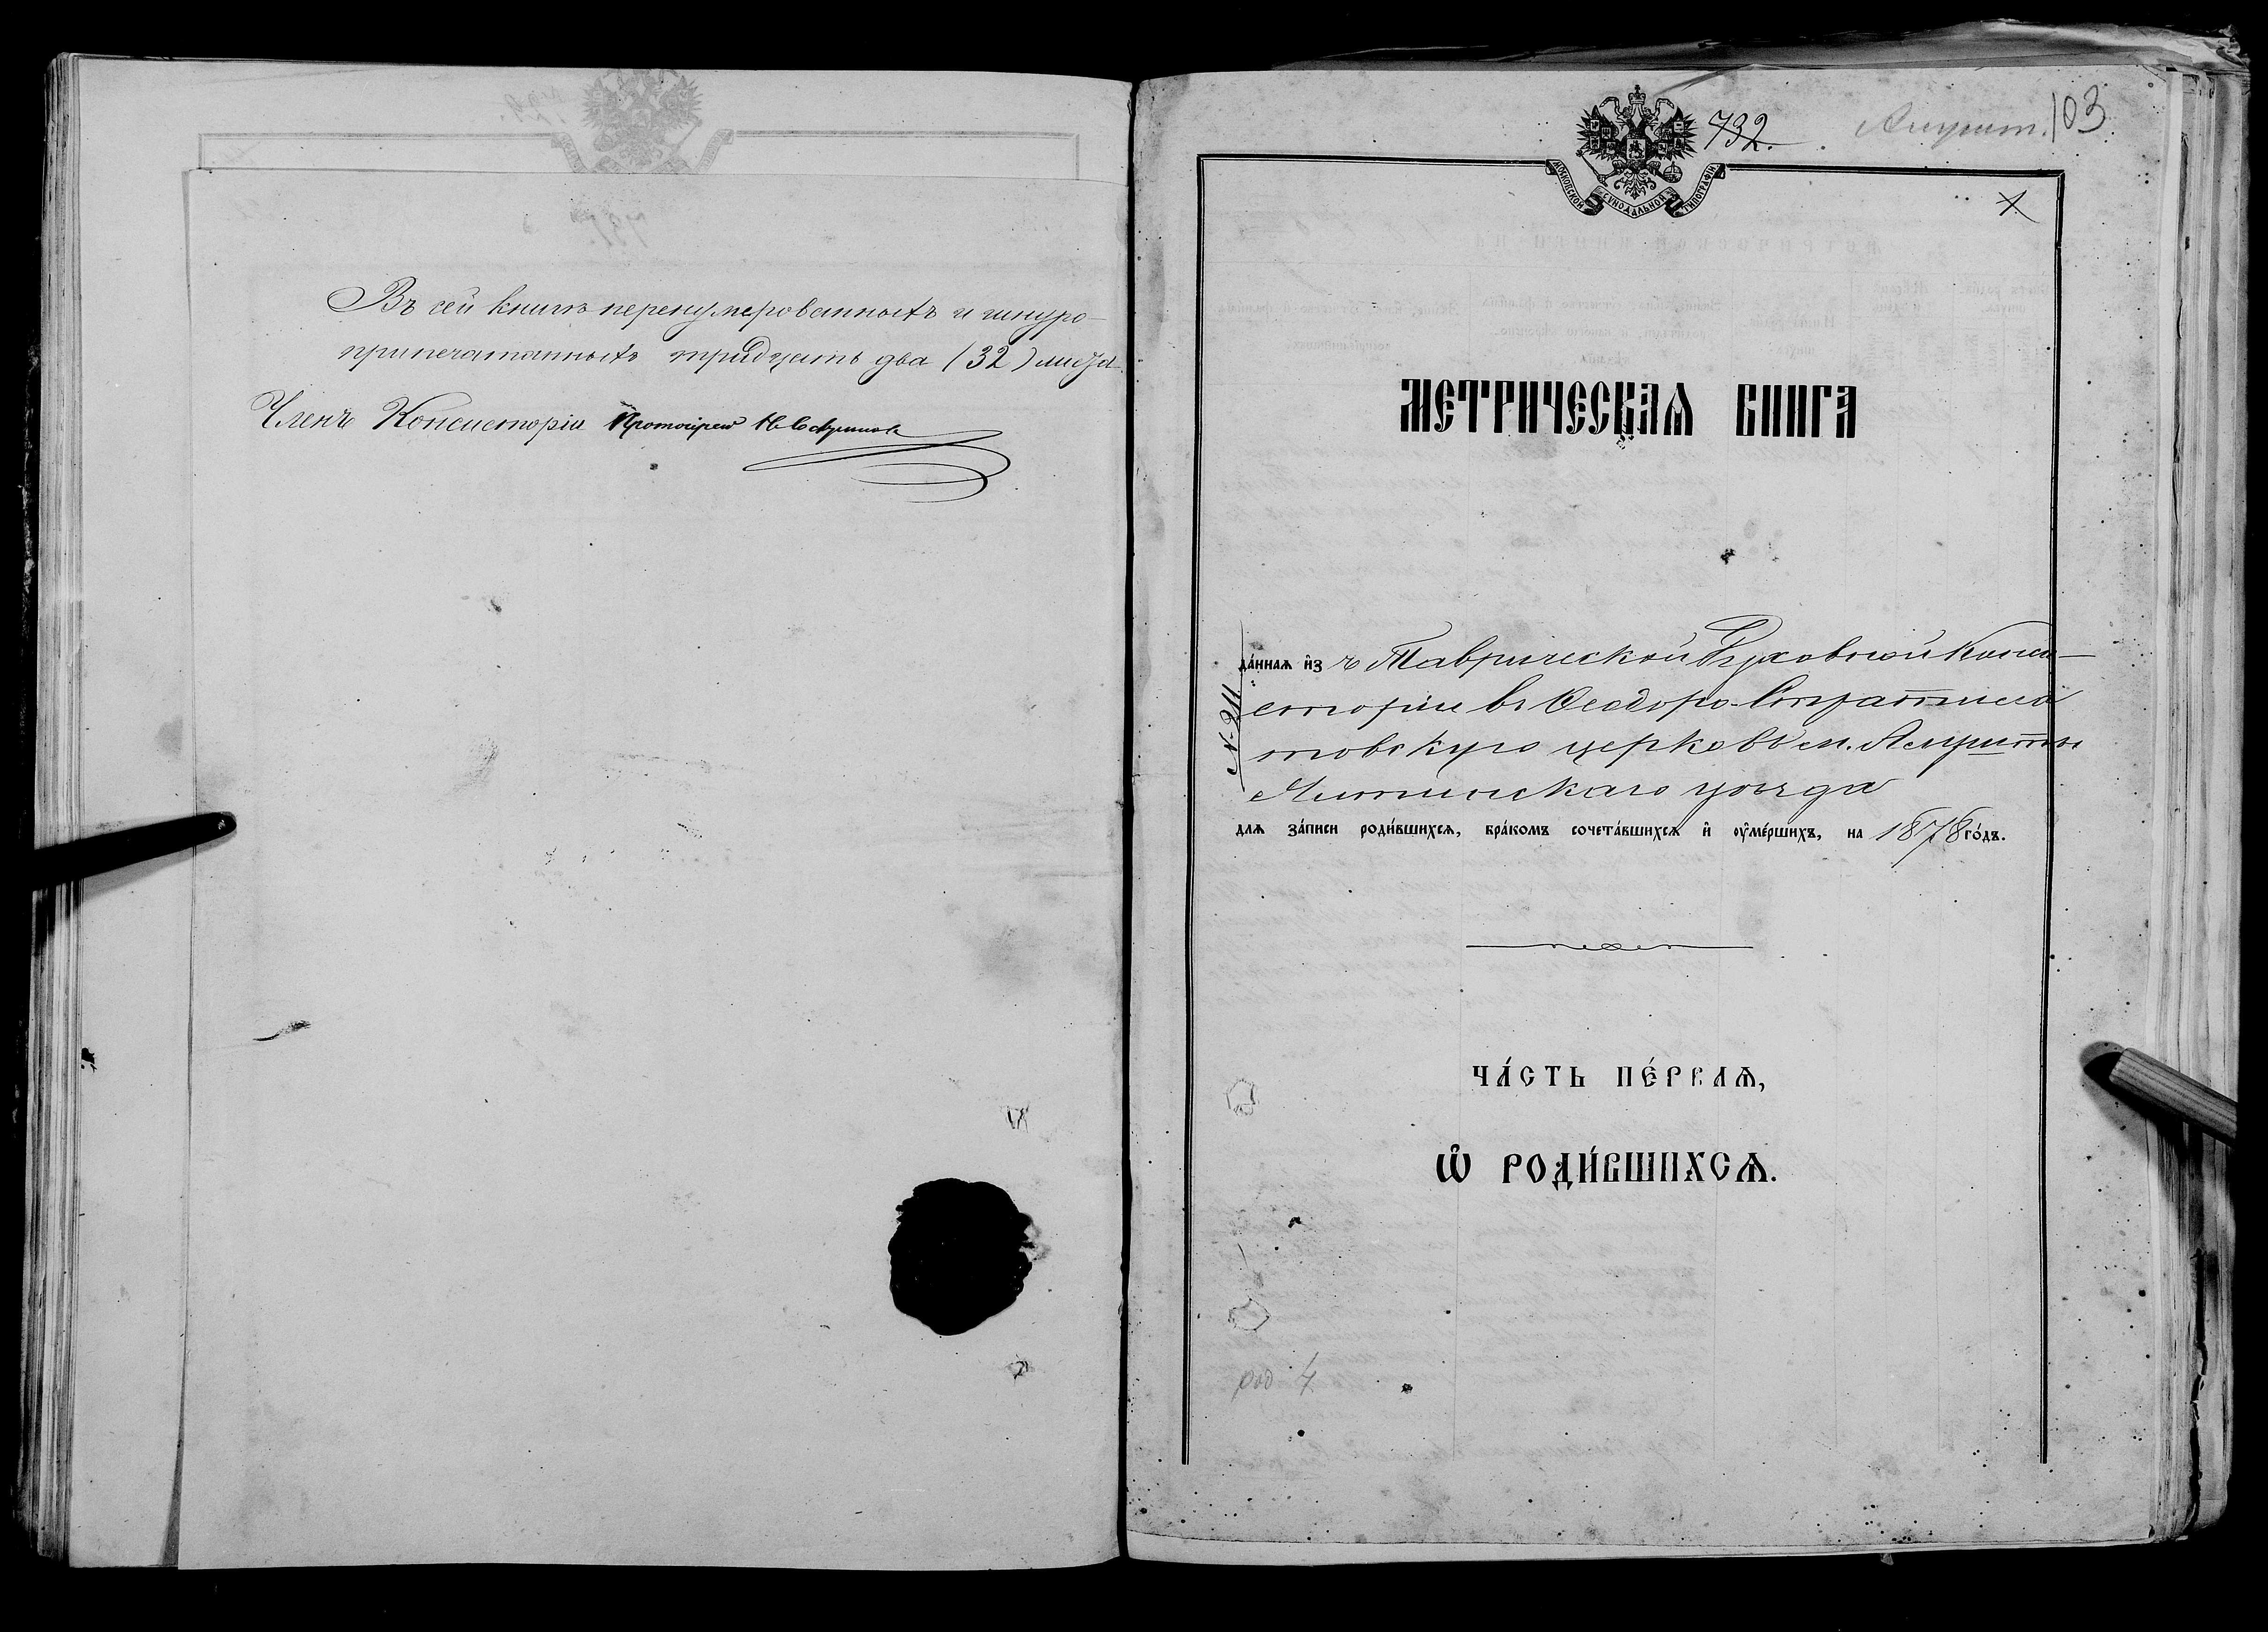 Въ сей книгѣ перенумерованныхъ и шнуро-
припечатанныхъ тридцать два (32) листа.
Членъ Консисторіи Протоіерей
732.
Алушт. 103
1
МОСКОВСКОЙ СѴНОДАЛЬНОЙ ТИПОГРАФІИ.
МЕТРИЧЕСКАѦ КНИГА
да́ннаѧ и҆з ъ Таврической Духовной Конси-
сторіи въ Ѳеодоро-Стратила
товскую церковь м. Алушты
Ялтинскаго уѣзда
№ 211
длѧ за́писи роди́вшихсѧ, бра́комъ сочета́вшихсѧ и҆ ᲂу҆ме́ршихъ, на 1878 го́дъ.
ЧА́СТЬ ПЕ́РВАѦ,
Ѡ҆ РОДИ́ВШИХСѦ.
род 4